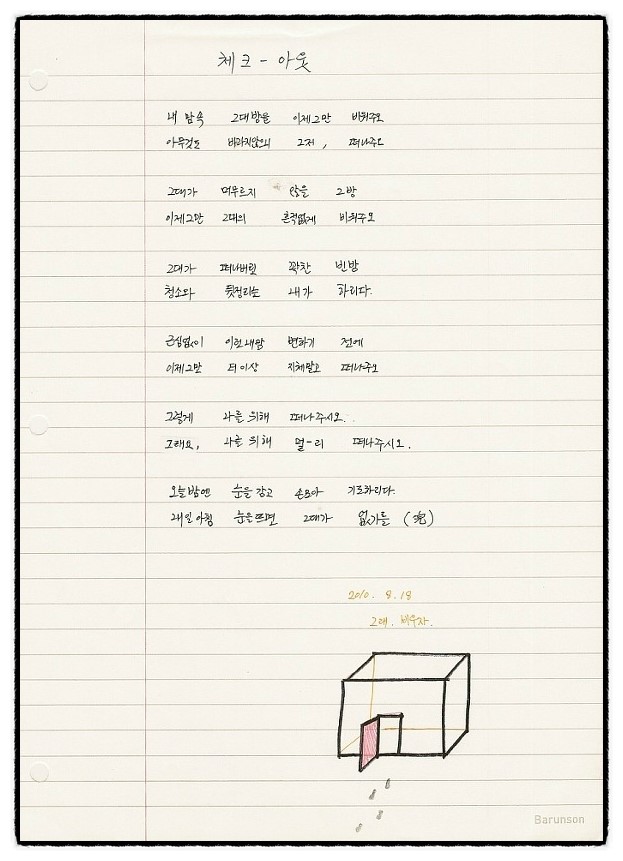 체크-아웃
내 맘속 그대방을 이제그만 비워주오
아무것도 바라지않으니 그저, 떠나주오
그대가 머무르지 않을 그방
이제그만 그대의 흔적없게 비워주오
그대가 떠나버린 꽉찬 빈방
청소와 뒷정리는 내가 하리다.
근심없이 이런내맘 변하기 전에
이제그만 더이상 지체말고 떠나주오
그렇게 나를 위해 떠나주시오.
그래요, 나를 위해 멀-리 떠나주시오.
오늘밤엔 눈을 감고 손모아 기도하리다.
내일 아침 눈을뜨면 그대가 없기를 (完)
2010. 8. 18
그래. 비우자.
Barunson